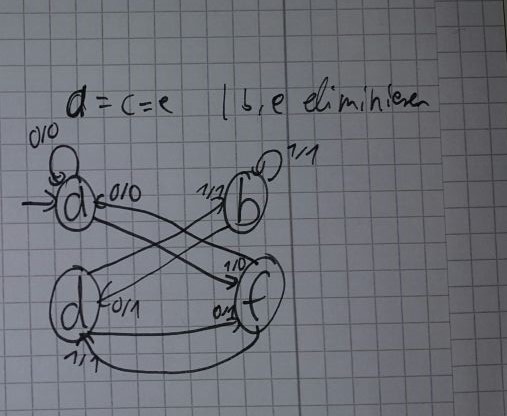 d = c = e | b, e eliminieren
0/0
1/1
d 0/0
1/1 b
1/0
d 0/1
0/1 f
1/1